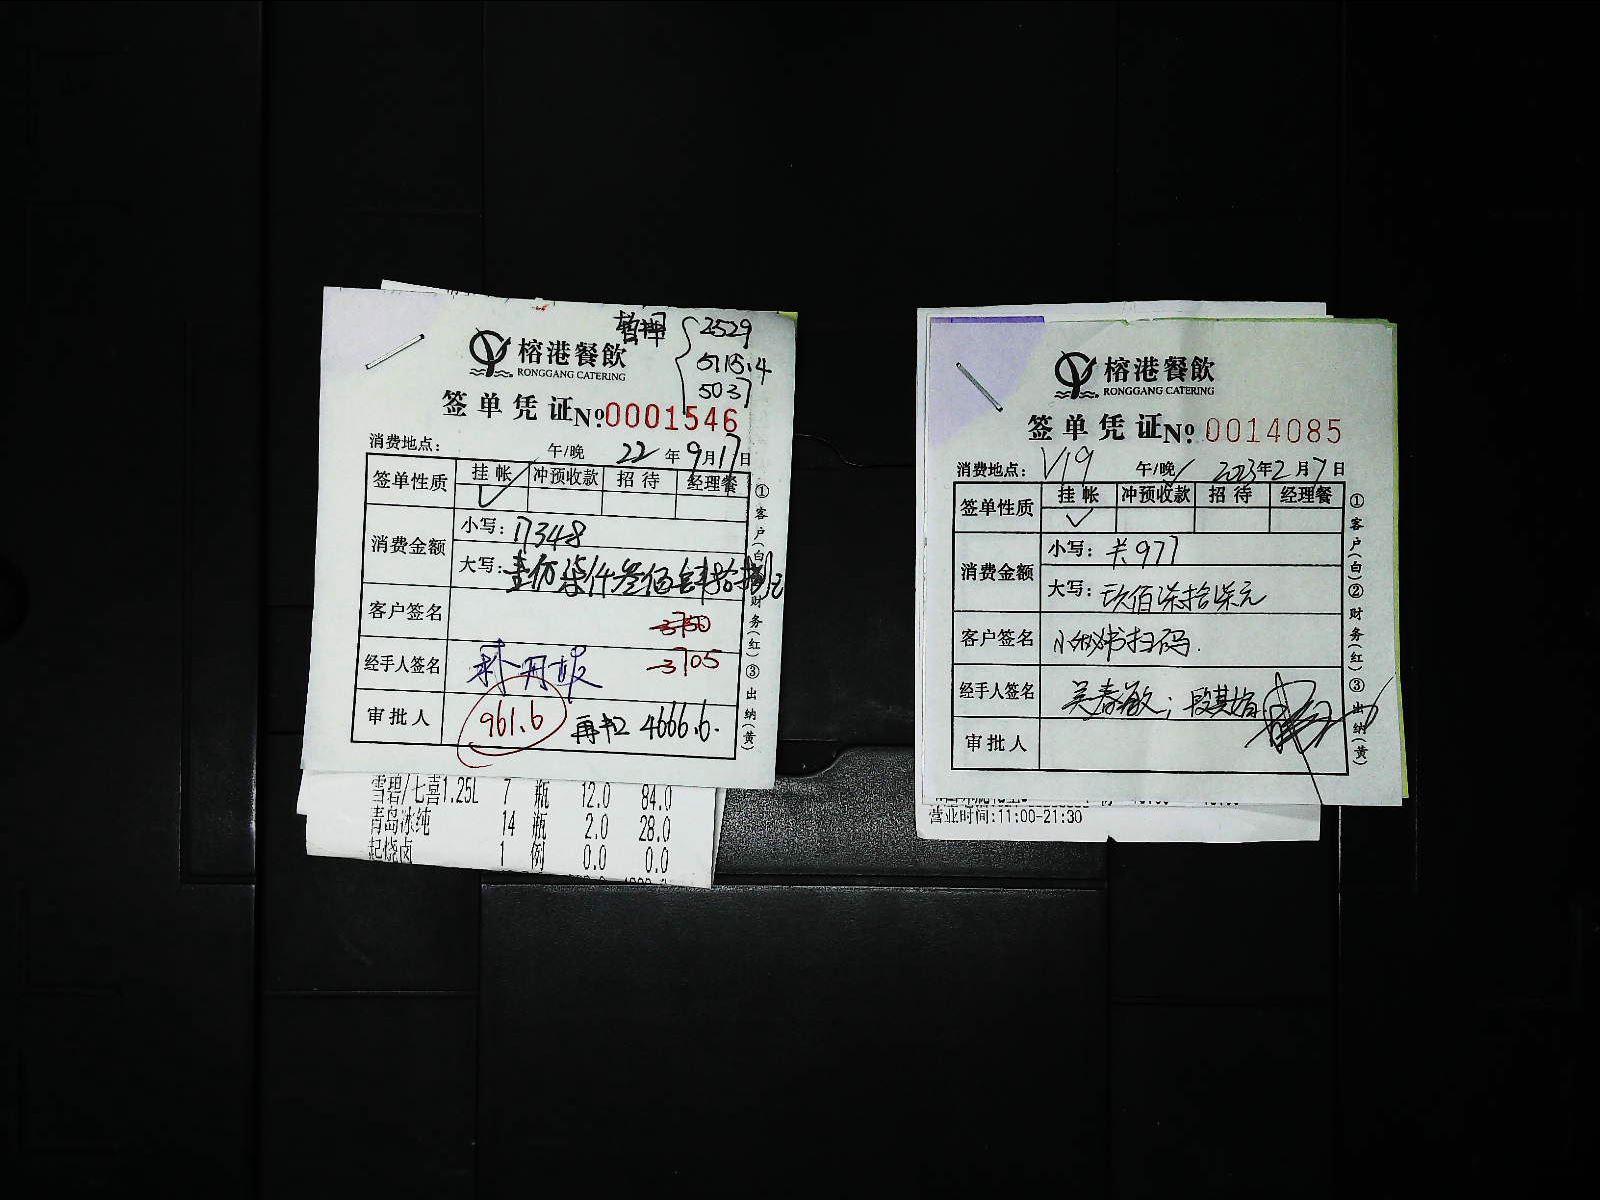 2529
5115.4
5037
榕港餐飲
RONGGANG CATERING
签单凭证 №:0001546
消费地点: 午/晚 22年9月17日
签单性质 挂帐 冲预收款 招待 经理餐
✓
消费金额 小写: 17348
大写: 壹万柒仟叁佰肆拾捌元
客户签名 -3750
经手人签名 -3705
审批人 961.6 再扣 4666.6.
①客户(白)②财务(红)③出纳(黄)
雪碧/七喜1.25L 7 瓶 12.0 84.0
青岛冰纯 14 瓶 2.0 28.0
起烧卤 1 例 0.0 0.0
榕港餐飲
RONGGANG CATERING
签单凭证 №: 0014085
消费地点: V19 午/晚✓ 2023年2月7日
签单性质 挂帐 冲预收款 招待 经理餐
✓
消费金额 小写: 977
大写: 玖佰柒拾柒元
客户签名 扫码.
经手人签名 吴春敏;段其娟
审批人
①客户(白)②财务(红)③出纳(黄)
营业时间:11:00-21:30